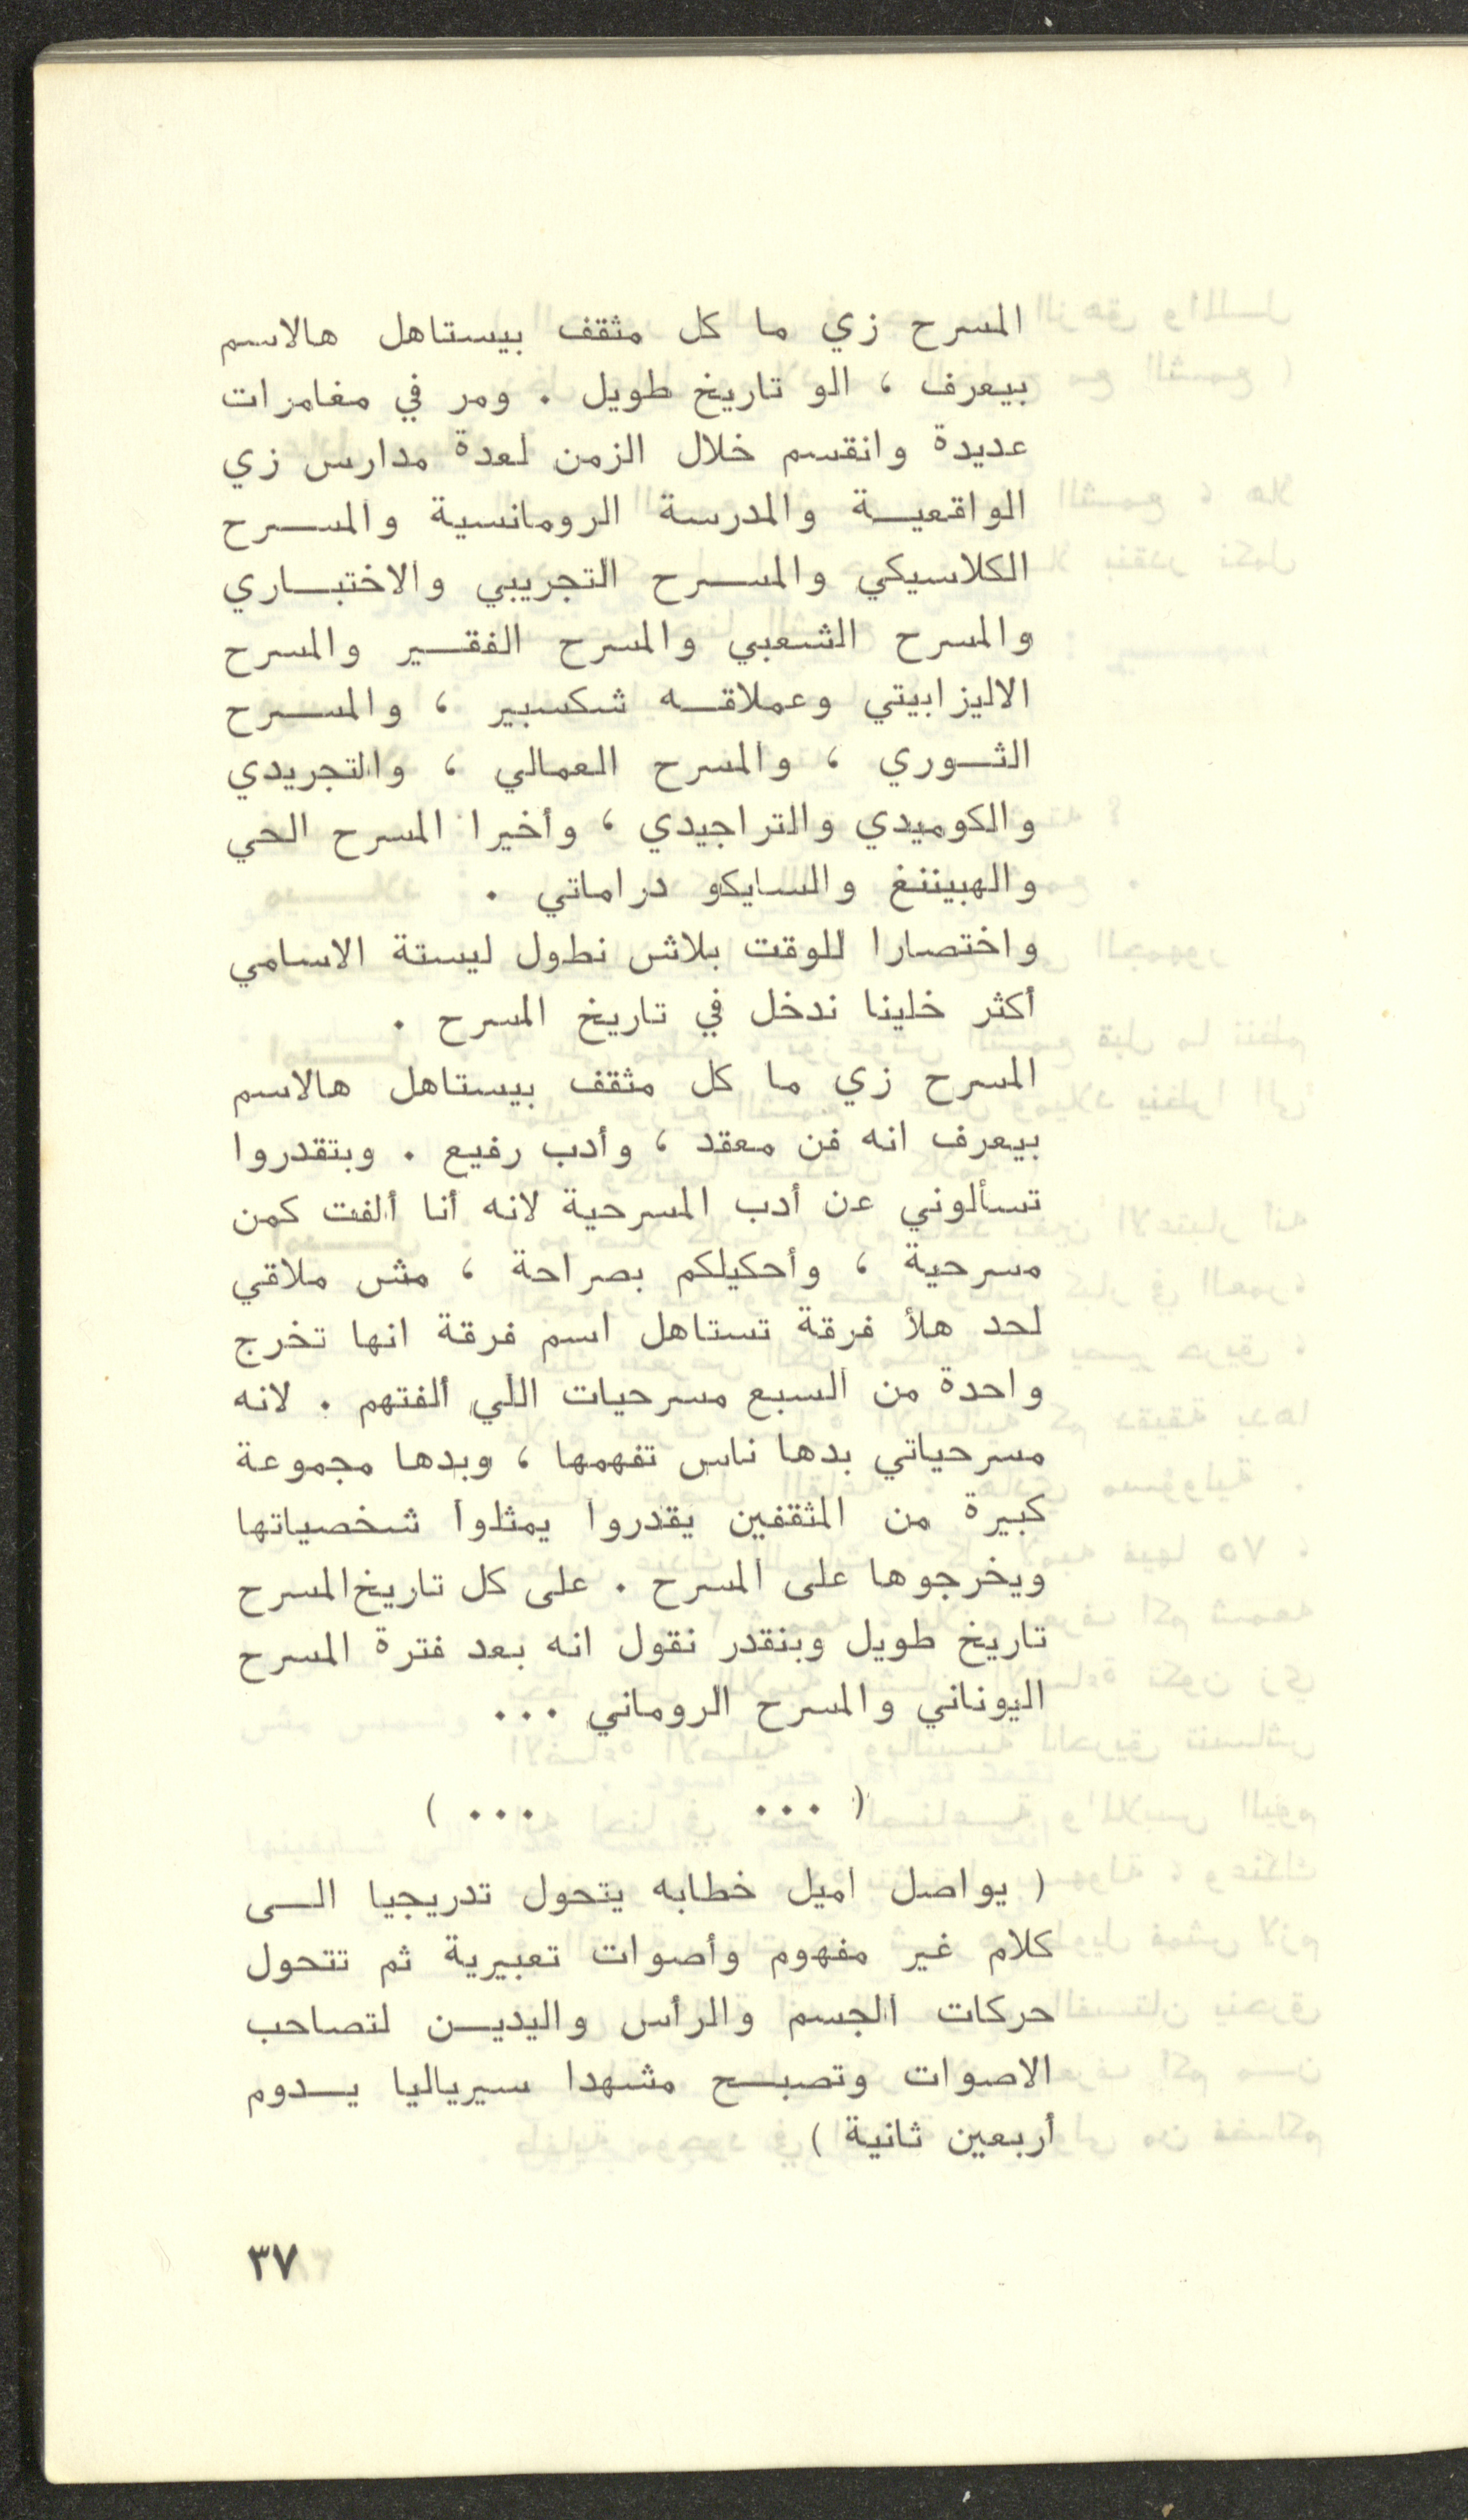 المسرح زي ما كل مثقف بيستاهل هالاسم
بيعرف ، الو تاريخ طويل . ومر في مغامرات
عديدة وانقسم خلال الزمن لعدة مدارس زي
الواقعيـة والمدرسة الرومانسية والمسـرح
الكلاسيكي والمسـرح التجريبي والاختبـاري
والمسرح الشعبي والمسرح الفقـير والمسرح
الاليزابيتي وعملاقـه شكسبير ، والمسـرح
الثـوري ، والمسرح العمالي ، والتجريدي
والكوميدي والتراجيدي ، وأخيرا المسرح الحي
والهبيننغ والسايكو دراماتي .
واختصارا للوقت بلاش نطول ليستة الاسامي
أكثر خلينا ندخل في تاريخ المسرح .
المسرح زي ما كل مثقف بيستاهل هالاسم
بيعرف انه فن معقد ، وأدب رفيع . وبتقدروا
تسألوني عن أدب المسرحية لانه أنا ألفت كمن
مسرحية ، وأحكيلكم بصراحة ، مش ملاقي
لحد هلأ فرقة تستاهل اسم فرقة انها تخرج
واحدة من السبع مسرحيات اللي ألفتهم . لانه
مسرحياتي بدها ناس تفهمها ، وبدها مجموعة
كبيرة من المثقفين يقدروا يمثلوا شخصياتها
ويخرجوها على المسرح . على كل تاريخ المسرح
تاريخ طويل وبنقدر نقول انه بعد فترة المسرح
اليوناني والمسرح الروماني ...
( ... ... )
( يواصل اميل خطابه يتحول تدريجيا الـى
كلام غير مفهوم وأصوات تعبيرية ثم تتحول
حركات الجسم والرأس واليديـن لتصاحب
الاصوات وتصبـح مشهدا سيرياليا يـدوم
أربعين ثانية )
٣٧